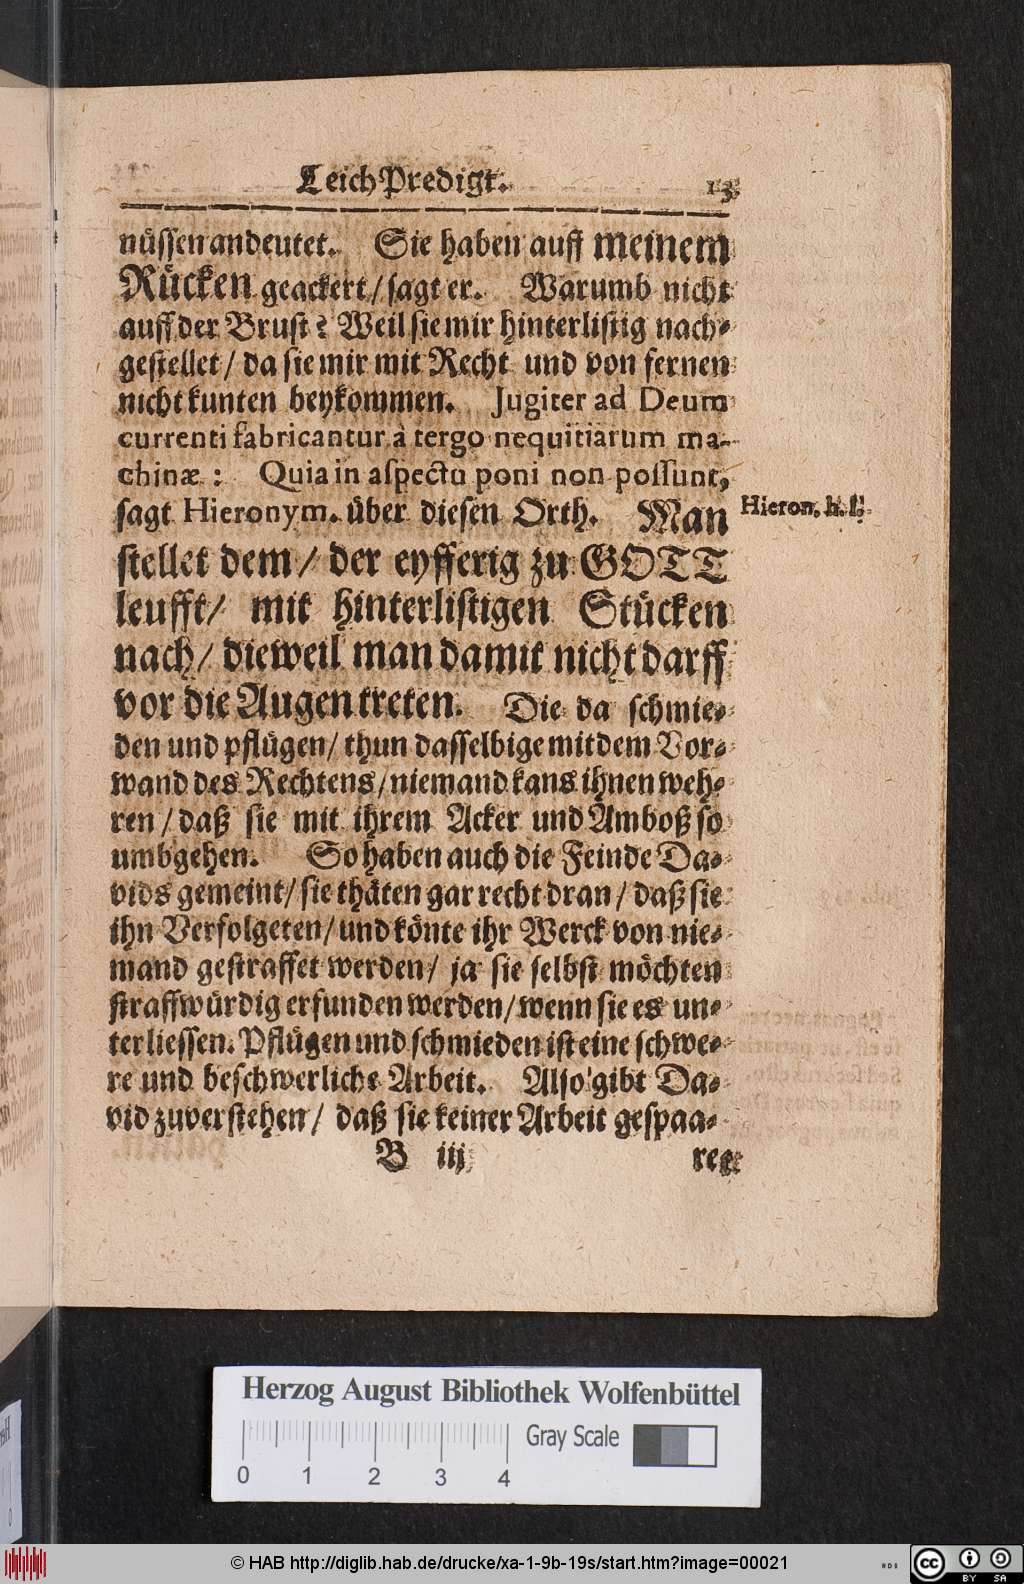 LeichPredigt. 13
nüssen andeutet. Sie haben auff meinem
Rücken geackert / sagt er. Warumb nicht
auff der Brust? Weil sie mir hinterlistig nach-
gestellet / da sie mir mit Recht und von fernen
nicht kunten beykommen. Jugiter ad Deum
currenti fabricantur à tergo nequitiarum ma-
chinæ: Quia in aspectu poni non possunt,
sagt Hieronym. über diesen Orth. Man
Hieron. h. l.
stellet dem / der eyfferig zu GOTT
leufft / mit hinterlistigen Stücken
nach / dieweil man damit nicht darff
vor die Augen treten. Die da schmie-
den und pflügen / thun dasselbige mit dem Vor-
wand des Rechtens / niemand kans ihnen weh-
ren / daß sie mit ihrem Acker und Amboß so
umbgehen. So haben auch die Feinde Da-
vids gemeint / sie thäten gar recht dran / daß sie
ihn Verfolgeten / und könte ihr Werck von nie-
mand gestraffet werden / ja sie selbst möchten
straffwürdig erfunden werden / wenn sie es un-
terliessen. Pflügen und schmieden ist eine schwe-
re und beschwerliche Arbeit. Also gibt Da-
vid zuverstehen / daß sie keiner Arbeit gespaa-
B iij
Herzog August Bibliothek Wolfenbüttel
Gray Scale
0 1 2 3 4
© HAB http://diglib.hab.de/drucke/xa-1-9b-19s/start.htm?image=00021
cc BY SA